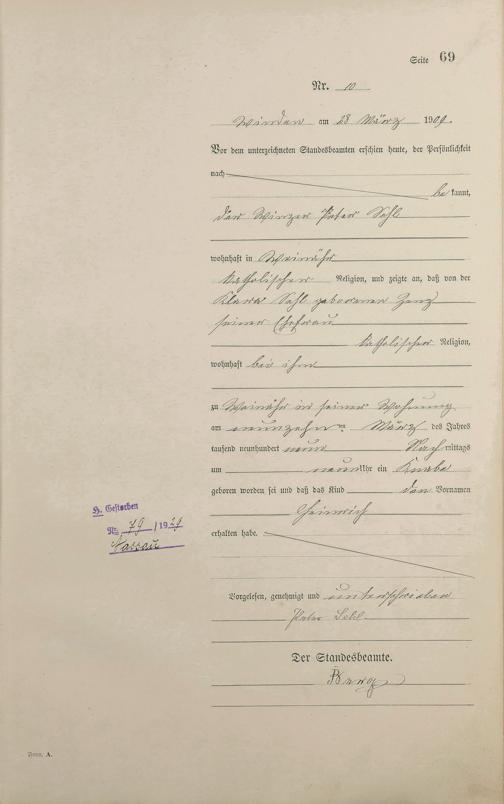 Seite 69
Nr. 10
Winden am 28 März 1909.
Vor dem unterzeichneten Standesbeamten erschien heute, der Persönlichkeit
nach
be kannt,
der Winzer Peter Sehl
wohnhaft in Weinähr
katholischer Religion, und zeigte an, daß von der
Klara Sehl geborenen Zenz
seiner Ehefrau
katholischer Religion,
wohnhaft bei ihm
zu Weinähr in seiner Wohnung
am neunzehn ten März des Jahres
tausend neunhundert neun Nach mittags
um neun Uhr ein Knabe
geboren worden sei und daß das Kind den Vornamen
Heinrich
erhalten habe.
H. Gestorben
No 79 / 1929
Nassau
Vorgelesen, genehmigt und unterschrieben
Peter Sehl
Der Standesbeamte.
Berg
Form. A.